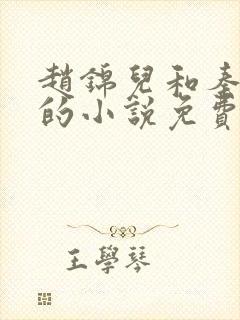 趙錦兒和秦
的小說免費
王學琴